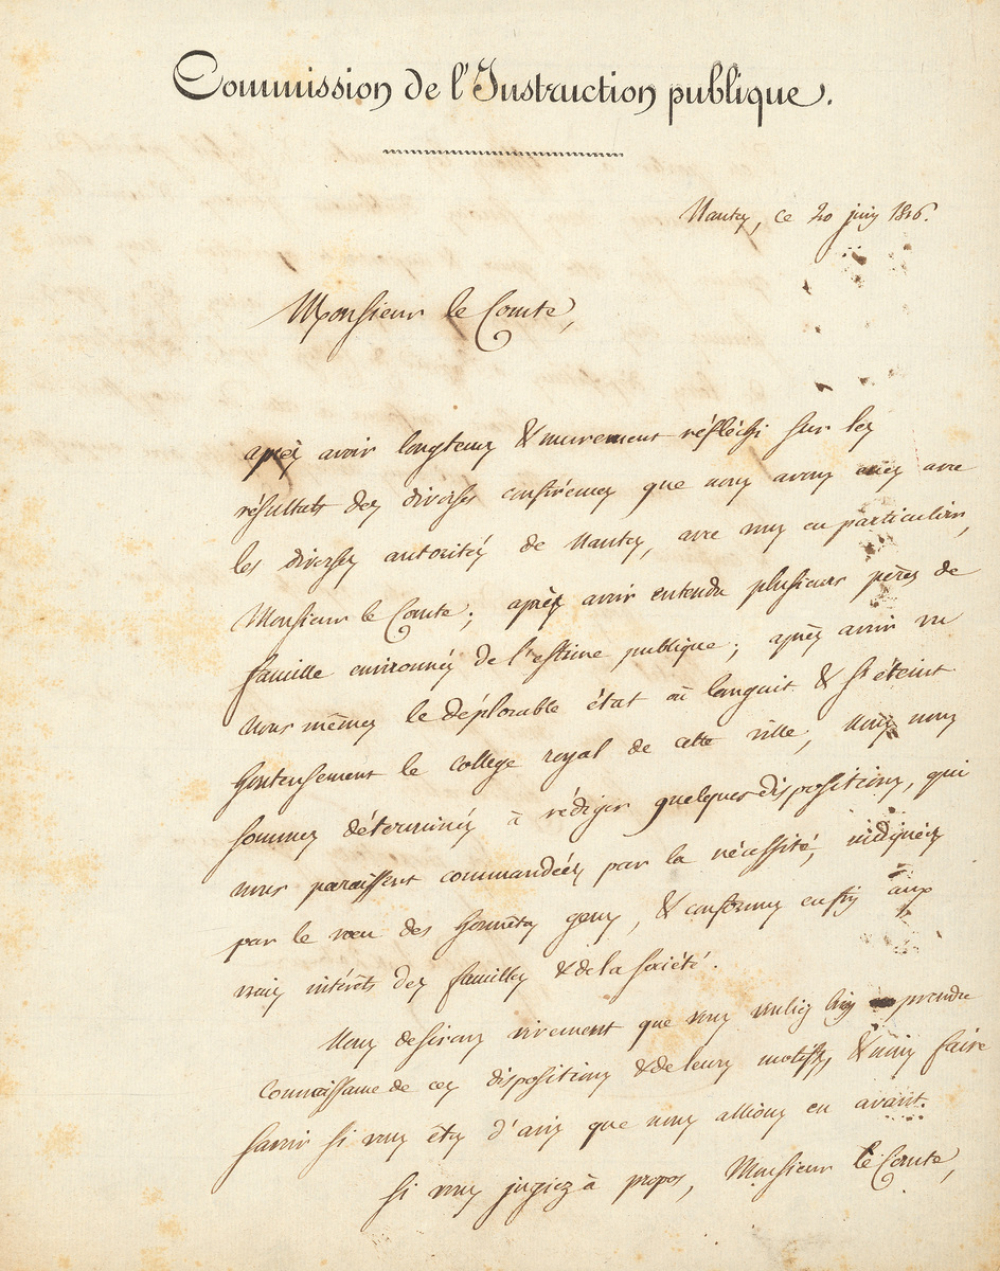 Commission de l'Instruction publique.
Nancy, ce 20 juin 1816.
Monsieur le Comte,
après avoir longtems & murement réfléchi sur les
résultats des diverses conférences que nous avons eues avec
les diverses autorités de Nancy, avec vous en particulier,
Monsieur le Comte; après avoir entendu plusieurs pères de
famille environnés de l'estime publique; après avoir vu
nous mêmes le déplorable état où languit & s'éteint
honteusement le college royal de cette ville, nous nous
sommes déterminés à rédiger quelques dispositions, qui
nous paraissent commandées par la nécessité, indiquées
par le vœu des honnêtes gens, & conformes enfin aux
vrais intérêts des familles & de la société.
Nous desirons vivement que vous vouliez bien prendre
connaissance de ces dispositions & de leurs motifs, & nous faire
savoir si vous êtes d'avis que nous allions en avant.
Si vous jugiez à propos, Monsieur le Comte,